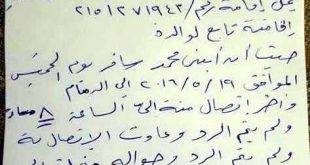 يحمل إقامة رقم / ٢١٥١٢٧١٩٤٣
الخاصة تابع لوالده
حيث أن ابني محمد سافر يوم الخميس
الموافق ٢٠١٦/٥/١٩ إلى الدمام
وآخر إتصال منه الى الساعة ٨ مساءً
ولم يتم الرد وعاودت الإتصال به
ولم يتم الرد وجواله